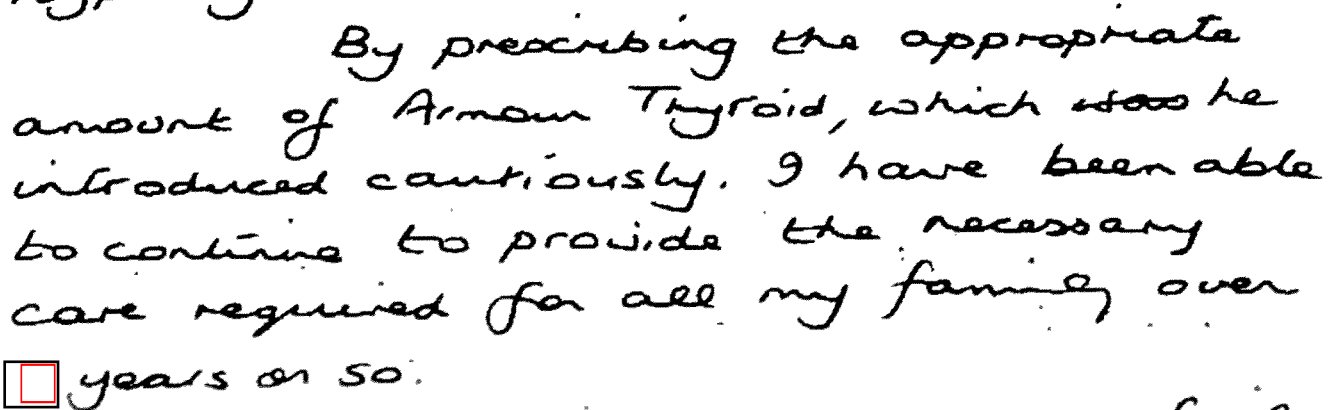 By prescribing the appropriate
amount of Armour Thyroid, which was he
introduced cautiously. I have been able
to continue to provide the necessary
care required for all my family over
years or so.